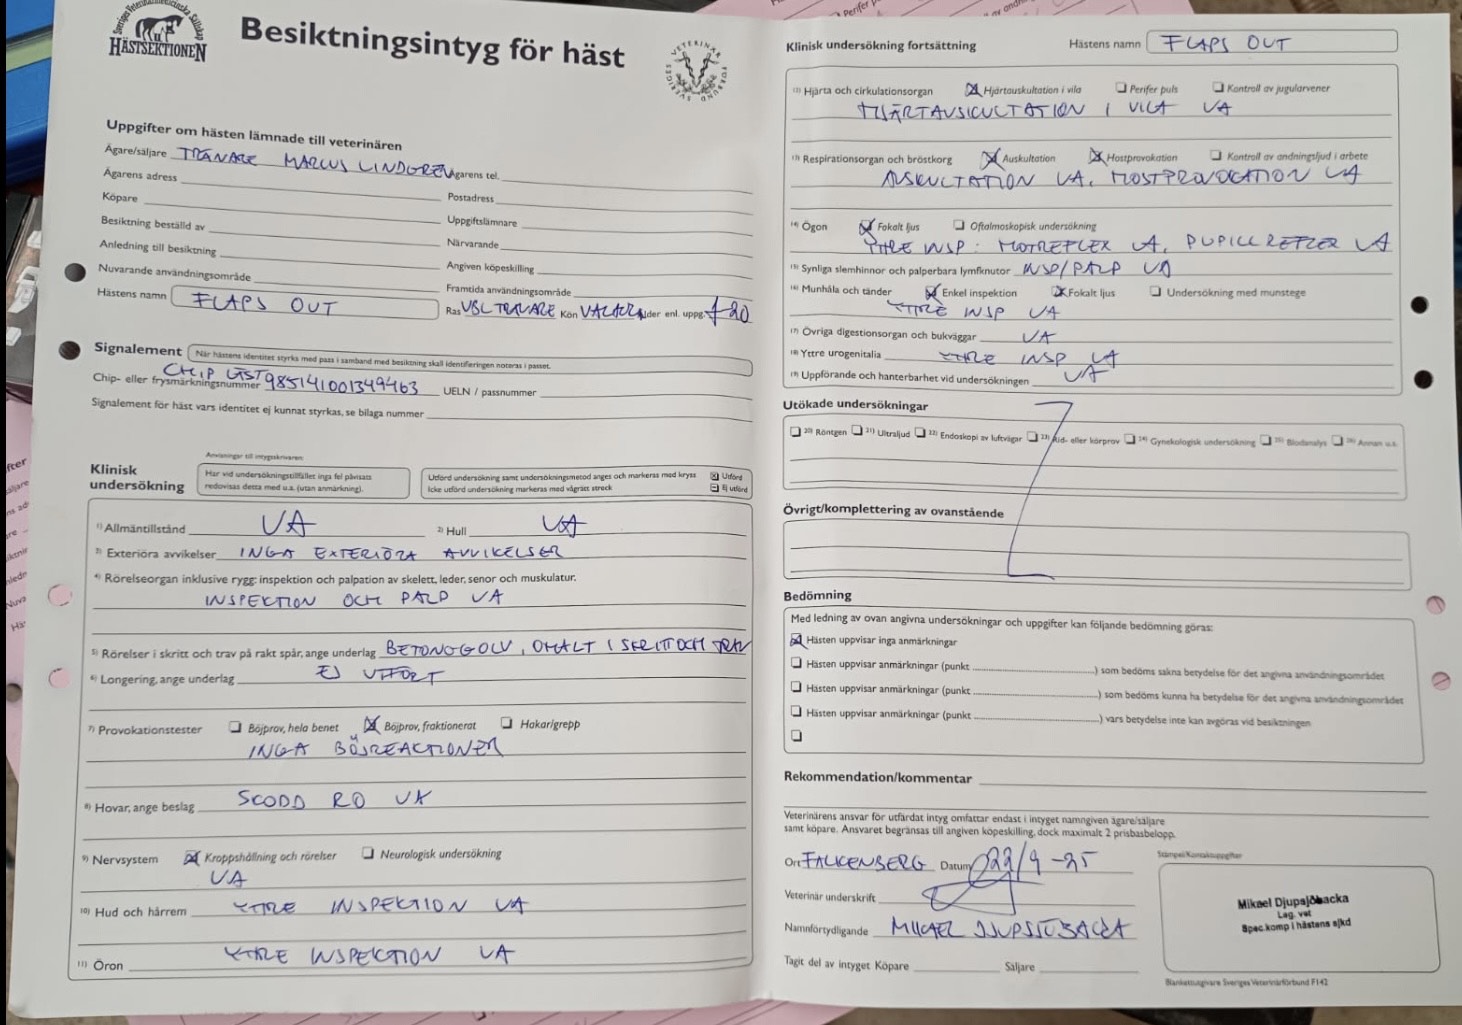 Sveriges Veterinärmedicinska Sällskap
HÄSTSEKTIONEN
Besiktningsintyg för häst
SVERIGES VETERINÄRFÖRBUND
Uppgifter om hästen lämnade till veterinären
Ägare/säljare TRÄNARE MARCUS LINDGREN Ägarens tel.
Ägarens adress
Köpare Postadress
Besiktning beställd av Uppgiftslämnare
Anledning till besiktning Närvarande
Nuvarande användningsområde Angiven köpeskilling
Framtida användningsområde
Hästens namn FLAPS OUT Ras VBL TRAVARE Kön VALACK Ålder enl. uppg. f-20
Signalement När hästens identitet styrks med pass i samband med besiktning skall identifieringen noteras i passet.
CHIP LÄST
Chip- eller frysmärkningsnummer 985141001349463 UELN / passnummer
Signalement för häst vars identitet ej kunnat styrkas, se bilaga nummer
Anvisningar till intygsskrivaren:
Klinisk undersökning
Har vid undersökningstillfället inga fel påvisats
redovisas detta med u.a. (utan anmärkning).
Utförd undersökning samt undersökningsmetod anges och markeras med kryss Utförd
Icke utförd undersökning markeras med vågrätt streck Ej utförd
1) Allmäntillstånd UA 2) Hull UA
3) Exteriöra avvikelser INGA EXTERIÖRA AVVIKELSER
4) Rörelseorgan inklusive rygg: inspektion och palpation av skelett, leder, senor och muskulatur.
INSPEKTION OCH PALP UA
5) Rörelser i skritt och trav på rakt spår, ange underlag BETONGGOLV, OHALT I SKRITT OCH TRAV
6) Longering, ange underlag EJ UTFÖRT
7) Provokationstester Böjprov, hela benet Böjprov, fraktionerat Hakar/grepp
INGA BÖJREAKTIONER
8) Hovar, ange beslag SCODD RO UA
9) Nervsystem Kroppshållning och rörelser Neurologisk undersökning
UA
10) Hud och hårrem YTTRE INSPEKTION UA
11) Öron YTTRE INSPEKTION UA
Klinisk undersökning fortsättning Hästens namn FLAPS OUT
12) Hjärta och cirkulationsorgan Hjärtauskultation i vila Perifer puls Kontroll av jugularvener
HJÄRTAUSKULTATION I VILA UA
13) Respirationsorgan och bröstkorg Auskultation Hostprovokation Kontroll av andningsljud i arbete
AUSKULTATION UA, HOSTPROVOKATION UA
14) Ögon Fokalt ljus Oftalmoskopisk undersökning
YTTRE INSP: HOTREFLEX UA, PUPILLREFLEX UA
15) Synliga slemhinnor och palperbara lymfknutor INSP/PALP UA
16) Munhåla och tänder Enkel inspektion Fokalt ljus Undersökning med munstege
YTTRE INSP UA
17) Övriga digestionsorgan och bukväggar UA
18) Yttre urogenitalia YTTRE INSP UA
19) Uppförande och hanterbarhet vid undersökningen UA
Utökade undersökningar
20) Röntgen 21) Ultraljud 22) Endoskopi av luftvägar 23) Rid- eller körprov 24) Gynekologisk undersökning 25) Blodanalys 26) Annan u.s.
Övrigt/komplettering av ovanstående
Bedömning
Med ledning av ovan angivna undersökningar och uppgifter kan följande bedömning göras:
Hästen uppvisar inga anmärkningar
Hästen uppvisar anmärkningar (punkt ) som bedöms sakna betydelse för det angivna användningsområdet
Hästen uppvisar anmärkningar (punkt ) som bedöms kunna ha betydelse för det angivna användningsområdet
Hästen uppvisar anmärkningar (punkt ) vars betydelse inte kan avgöras vid besiktningen
Rekommendation/kommentar
Veterinärens ansvar för utfärdat intyg omfattar endast i intyget namngiven ägare/säljare
samt köpare. Ansvaret begränsas till angiven köpeskilling, dock maximalt 2 prisbasbelopp.
Ort FALKENBERG Datum 22/9-25
Stämpel/Kontaktuppgifter
Veterinär underskrift
Namnförtydligande MIKAEL DJUPSJÖBACKA
Mikael Djupsjöbacka
Leg. vet
Spec.komp i hästens sjkd
Tagit del av intyget Köpare Säljare
Blankettutgivare Sveriges Veterinärförbund F142